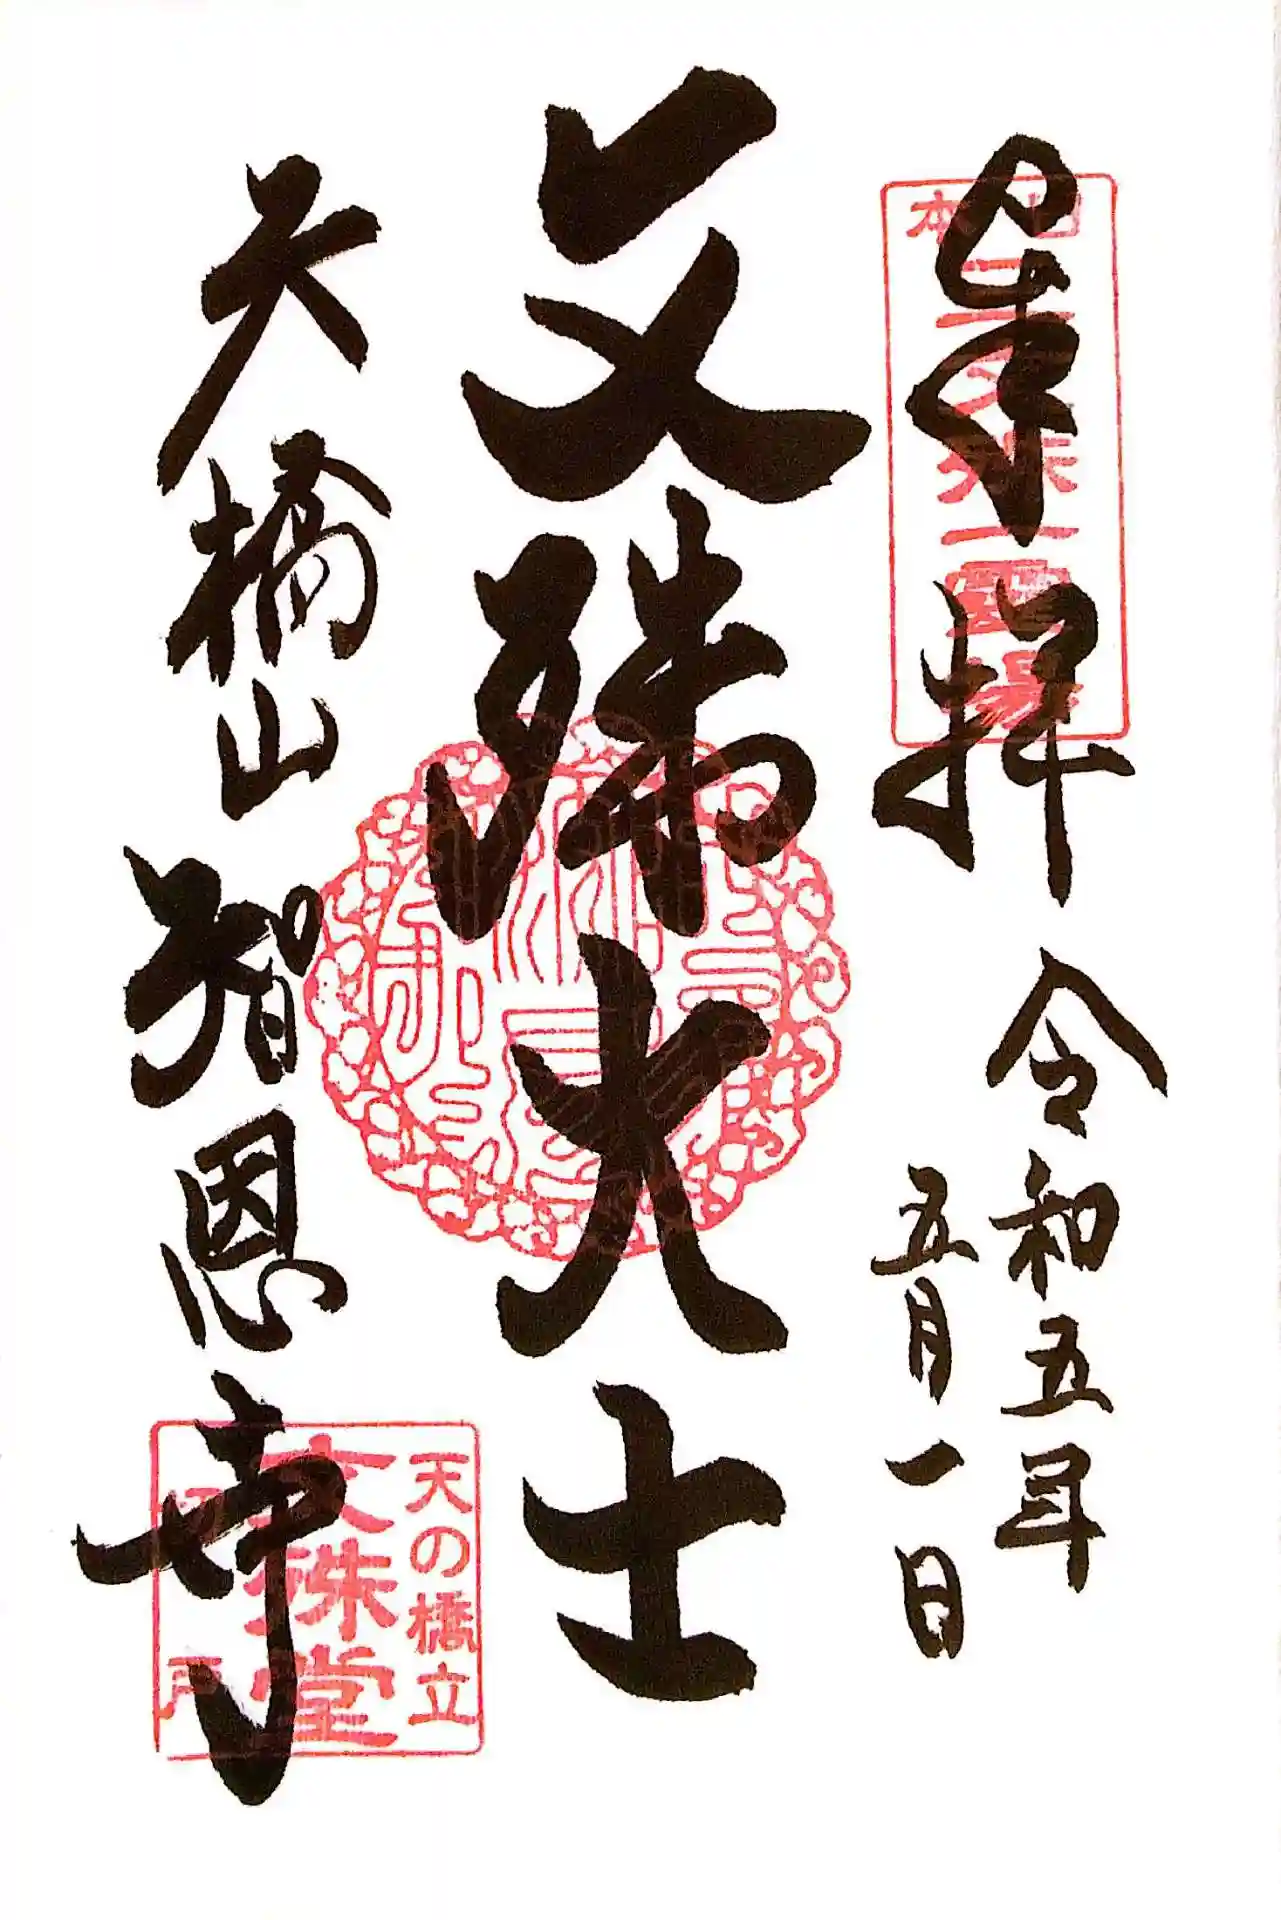 奉拝
令和五年
五月一日
文殊大士
天橋山
智恩寺
天の橋立
文殊堂